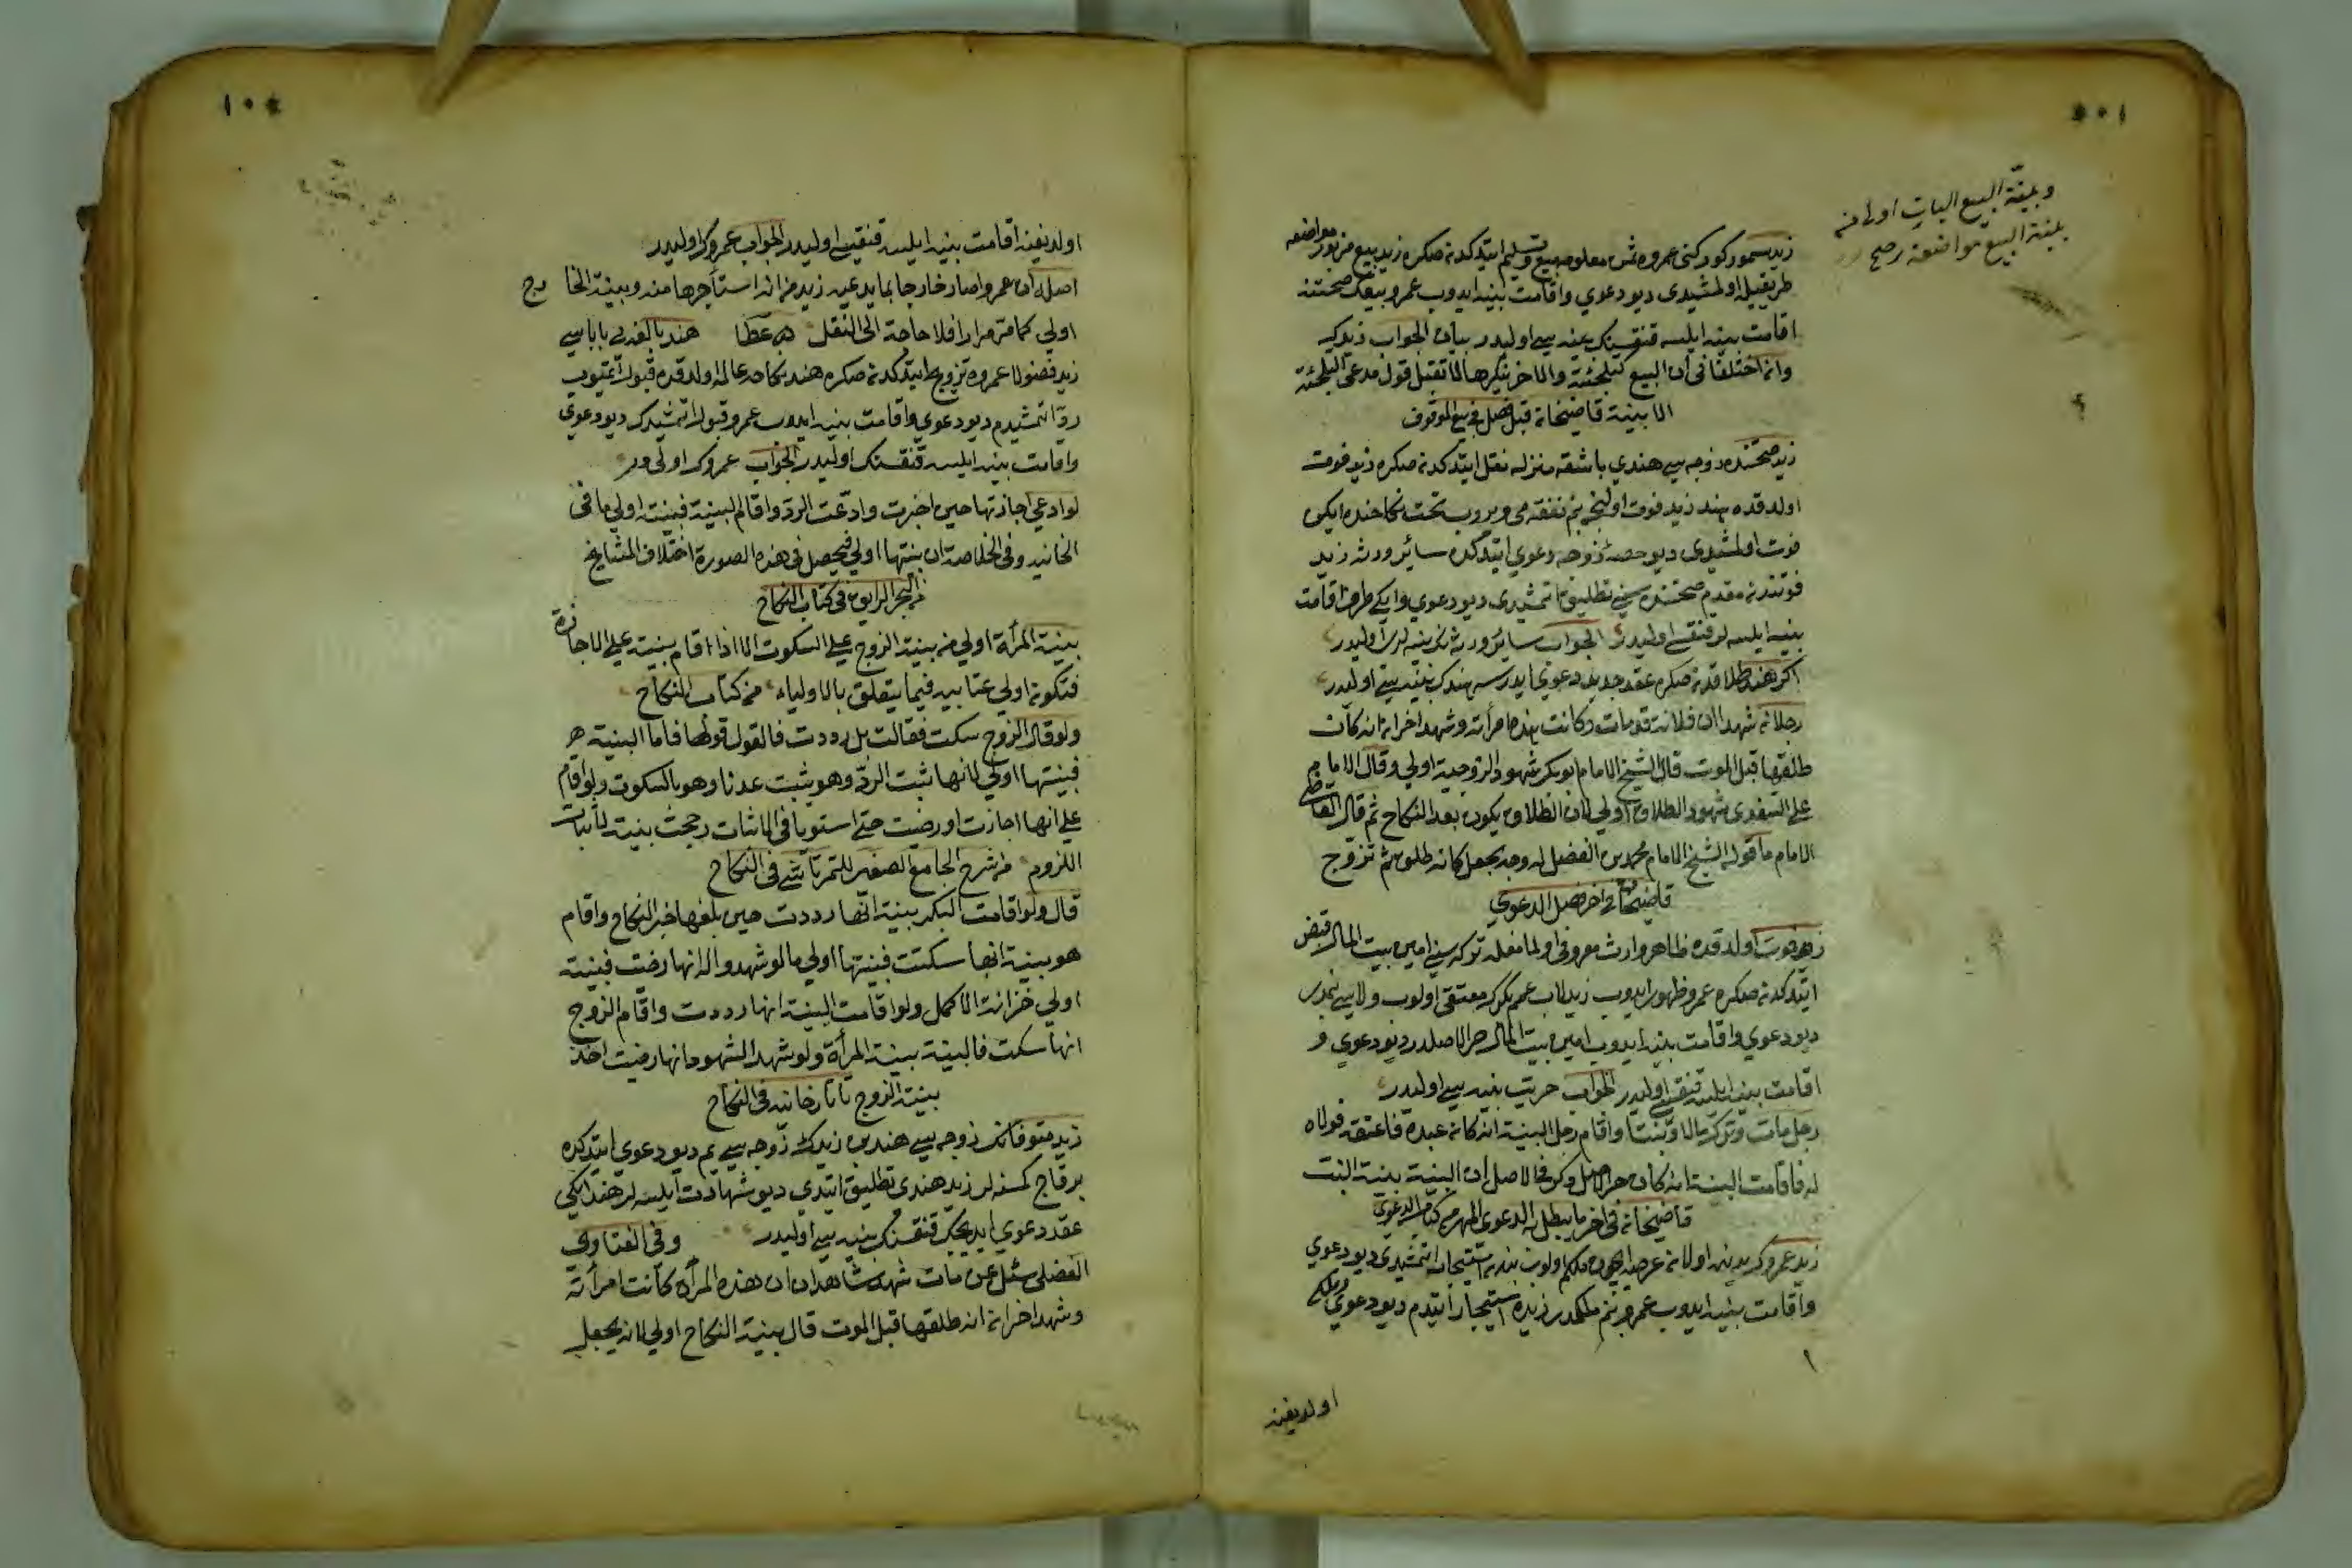 وبينة البيع البات اولى من
بينة البيع مواضعة رصح
زيد سمور كوركنى عمروه ثمن معلومه بيع وتسليم ايتدكدنصكره زيد بيع مزبور مواضعه
طريقيله اولمشيدى ديو دعوى واقامت بينه ايدوب عمرو بيعك صحتنه
اقامت بينه ايلسه قنقسنك بينه سى اوليدر بيان الجواب زيدك
وان اختلفا فى ان البيع تلجئة والاخر ينكرها لا تقبل قول مدعى التلجئة
الا ببينة قاضيخان قبل فصل فى بيع الموقوف
زيد صحتنده زوجه سى هندى باشقه منزله نقل ايتدكدنصكره زيد فوت
اولدقده هند زيد فوت اولنجه بنم نفقه مى ويروب تحت نكاحنده ايكن
فوت اولمشيدى ديو حصه زوجه دعوى ايتدكده سائر ورثه زيد
فوتندن مقدم صحتنده سنى تطليق اتمشيدى ديو دعوى وايكى طرف اقامت
بينه ايلسه لر قنقسى اوليدر الجواب سائر ورثه نك بينه لرى اوليدر
اكر هند طلاقدنصكره عقد جديد دعوى ايدرسه هندك بينه سى اوليدر
رجلان شهدا ان فلانا قد مات وكانت هذه امرأته وشهد اخران انه كان
طلقها قبل الموت قال الشيخ الامام ابو بكر شهود الزوجية اولى وقال الامام
على السغدى شهود الطلاق اولى لان الطلاق يكون بعد النكاح ثم قال القاضى
الامام ما قوله الشيخ الامام محمد بن الفضل له وجه يجعل كانه طلق ثم تزوج
قاضيخان فى اخر فصل الدعوى
زيد فوت اولدقده ظاهر وارث معروفى اولمامغله تركه سنى امين بيت المال قبض
ايتدكدنصكره عمرو ظهور ايدوب زيد لاب عمم بكرك معتقى اولوب ولاسى بمدر
ديو دعوى واقامت بينه ايدوب امين بيت المال حر الاصلدر ديو دعوى و
اقامت بينه ايلسه قنقسى اوليدر الجواب حريت بينه سى اوليدر
رجل مات وترك مالا وبنتا واقام رجل البينة انه كان عبده فاعتقه فولاه
له فاقامت البينة انه كان حر الاصل وذكر فى الاصل ان البينة بينة البنت
قاضيخان فى اخر ما يبطل به الدعوى المهر من كتاب الدعوى
زيد عمروك يدنده اولان عرصه ايچون ملكم اولوب بندن استيجار اتمشيدى ديو دعوى
واقامت بينه ايدوب عمرو بنم ملكمدر زيده استيجار ايتدم ديو دعوى وملكى
اولديغنه
اولديغنه اقامت بينه ايلسه قنقيسى اوليدر الجواب عمروك اوليدر
اصله ان عمروا صار خارجا بما يدعيه زيد من انه استأجرها منه وبينة الخا رج
اولى كما مر مرارا فلا حاجة الى النقل هند بالغه نى باباسى
زيد فضولا عمروه تزويج ايتدكدنصكره هند نكاحه عالمه اولدقده قبول ايتميوب
رد اتمشيدم ديو دعوى واقامت بينه ايدوب عمرو قبول اتمشيدك ديو دعوى
واقامت بينه ايلسه قنقسنك اوليدر الجواب عمروك اولى در
لو ادعى اجازتها حين اخبرت وادعت الرد واقاما البينة فبينته اولى ما فى
الخانيه وفى الخلاصة ان بينتها اولى فيحصل فى هذه الصورة اختلاف المشايخ
من البحر الرايق فى كتاب النكاح
بينة المرأة اولى من بينة الزوج على السكوت الا اذا اقام بينة على الاجازة
فتكون اولى عتابيه فيما يتعلق بالاولياء من كتاب النكاح
ولو قال الزوج سكت فقالت بل رددت فالقول قولها فاما البينة
فبينتها اولى لانها تثبت الرد وهو يثبت عدما وهو السكوت ولو اقام
على انها اجازت او رضت حتى استويا فى الاثبات رجحت بينته لاثبات
اللزوم من شرح الجامع الصغير للتمرتاشى فى النكاح
قال ولو اقامت البكر بينة انها رددت حين بلغها خبر النكاح واقام
هو بينة انها سكتت فبينتها اولى ما لو شهدوا له انها رضت فبينته
اولى خزانة الاكمل ولو اقامت البينة انها رددت واقام الزوج
انها سكت فالبينة بينة المرأة ولو شهد الشهود انها رضيت اخذ
بينة الزوج تاتارخانيه فى النكاح
زيد متوفانك زوجه سى هند بن زيدك زوجه سى يم ديو دعوى ايتدكده
برقاج كمسنه لر زيد هندى تطليق ايتدى ديو شهادت ايلسه لر هند ايكى
عقد دعوى ايديجك قنقسنك بينه سى اوليدر وفى الفتاوى
الفضلى سئل عن مات شهد شاهدان ان هذه المرأة كانت امرأته
وشهد اخران انه طلقها قبل الموت قال بينة النكاح اولى لانه يجعل